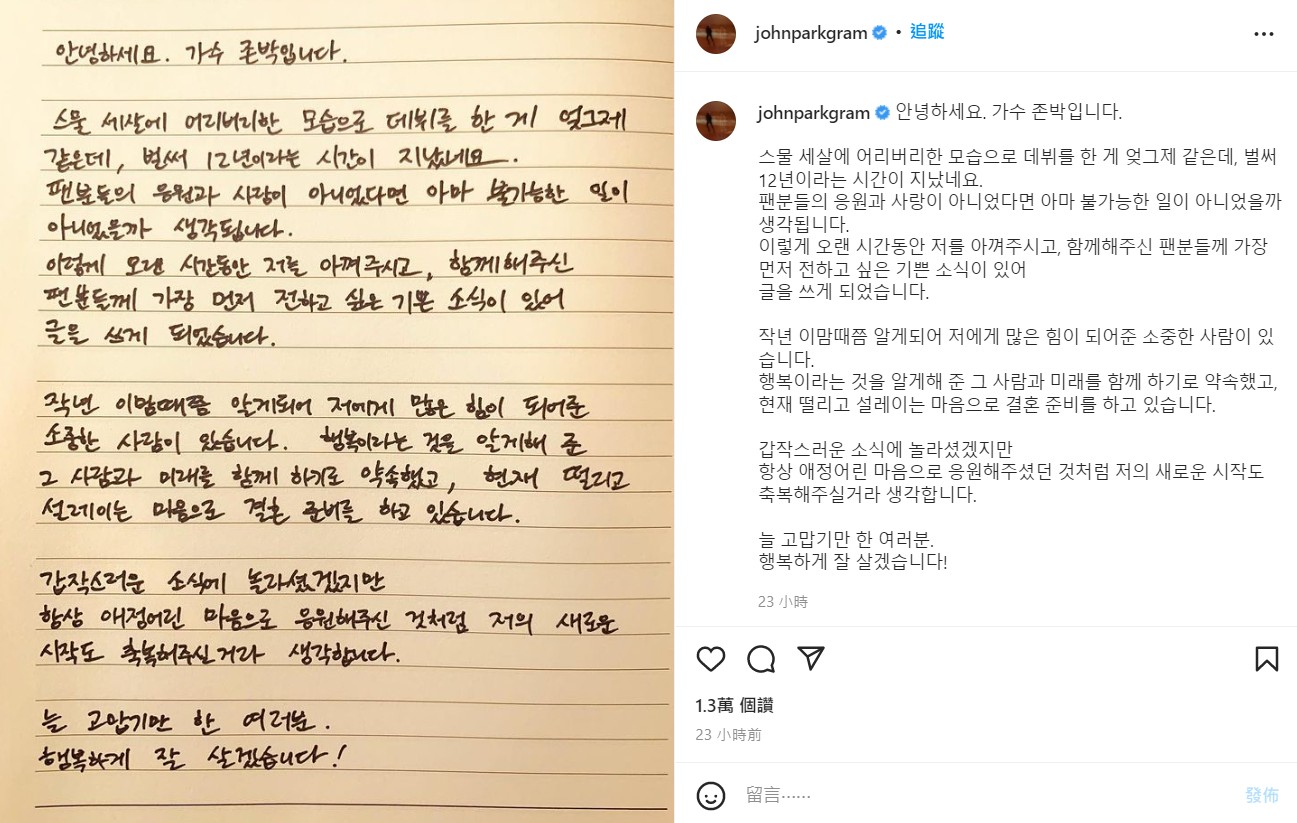 안녕하세요. 가수 존박입니다.
스물 세살에 어리버리한 모습으로 데뷔를 한 게 엊그제
같은데, 벌써 12년이라는 시간이 지났네요.
팬분들의 응원과 사랑이 아니었다면 아마 불가능한 일이
아니었을까 생각됩니다.
이렇게 오랜 시간동안 저를 아껴주시고, 함께해주신
팬분들께 가장 먼저 전하고 싶은 기쁜 소식이 있어
글을 쓰게 되었습니다.
작년 이맘때쯤 알게되어 저에게 많은 힘이 되어준
소중한 사람이 있습니다. 행복이라는 것을 알게해 준
그 사람과 미래를 함께 하기로 약속했고, 현재 떨리고
설레이는 마음으로 결혼 준비를 하고 있습니다.
갑작스러운 소식에 놀라셨겠지만
항상 애정어린 마음으로 응원해주신 것처럼 저의 새로운
시작도 축복해주실거라 생각합니다.
늘 고맙기만 한 여러분.
행복하게 잘 살겠습니다!
johnparkgram • 追蹤
johnparkgram 안녕하세요. 가수 존박입니다.
스물 세살에 어리버리한 모습으로 데뷔를 한 게 엊그제 같은데, 벌써
12년이라는 시간이 지났네요.
팬분들의 응원과 사랑이 아니었다면 아마 불가능한 일이 아니었을까
생각됩니다.
이렇게 오랜 시간동안 저를 아껴주시고, 함께해주신 팬분들께 가장
먼저 전하고 싶은 기쁜 소식이 있어
글을 쓰게 되었습니다.
작년 이맘때쯤 알게되어 저에게 많은 힘이 되어준 소중한 사람이 있
습니다.
행복이라는 것을 알게해 준 그 사람과 미래를 함께 하기로 약속했고,
현재 떨리고 설레이는 마음으로 결혼 준비를 하고 있습니다.
갑작스러운 소식에 놀라셨겠지만
항상 애정어린 마음으로 응원해주셨던 것처럼 저의 새로운 시작도
축복해주실거라 생각합니다.
늘 고맙기만 한 여러분.
행복하게 잘 살겠습니다!
23 小時
1.3萬 個讚
23 小時前
留言⋯⋯ 發佈